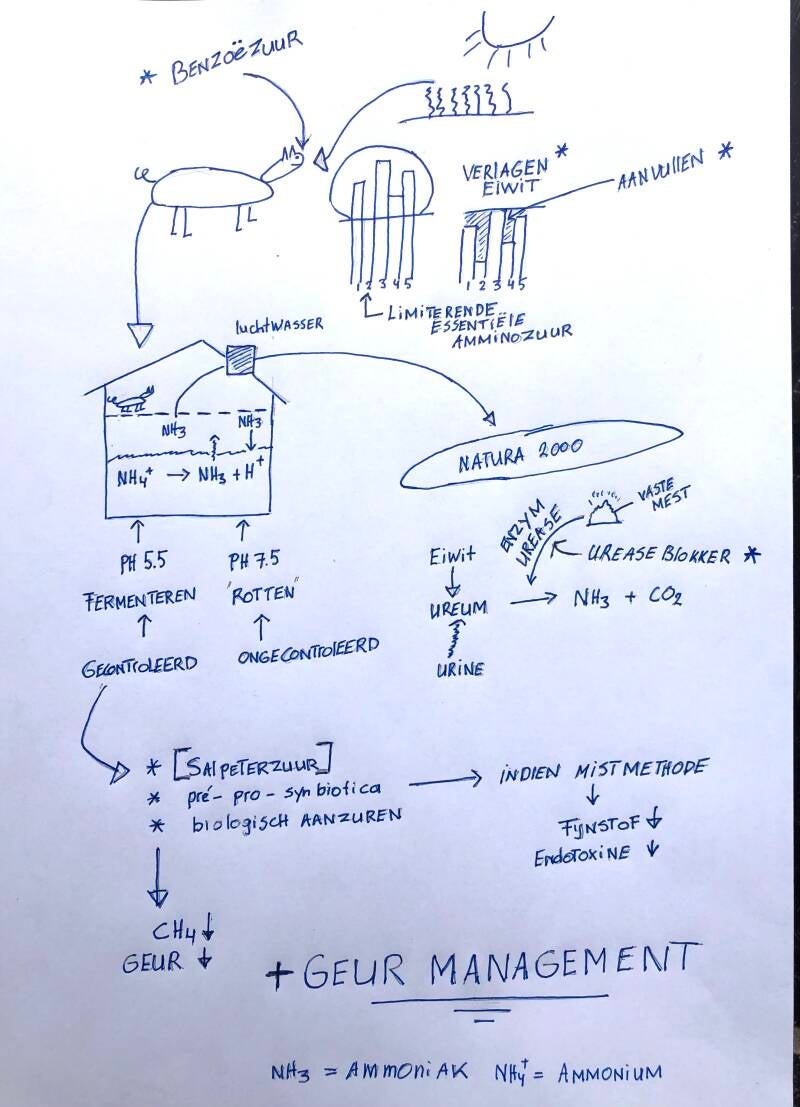 * BENZOËZUUR
VERLAGEN *
EIWIT
AANVULLEN *
1 2 3 4 5
1 2 3 4 5
LIMITERENDE
ESSENTIËLE
AMMINOZUUR
luchtWASSER
NH3
NH3
NH4+ → NH3 + H+
NATURA 2000
PH 5.5
PH 7.5
FERMENTEREN
"ROTTEN"
GECONTROLEERD
ONGECONTROLEERD
ENZYM
UREASE
VASTE
MEST
UREASE BLOKKER *
Eiwit
UREUM → NH3 + CO2
URINE
* [SALPETERZUUR]
* pré- pro- synbiotica
* biologisch AANZUREN
→ INDIEN MISTMETHODE
FIJNSTOF ↓
ENDOTOXINE ↓
CH4 ↓
GEUR ↓
+ GEUR MANAGEMENT
NH3 = AMMONIAK NH4+ = AMMONIUM